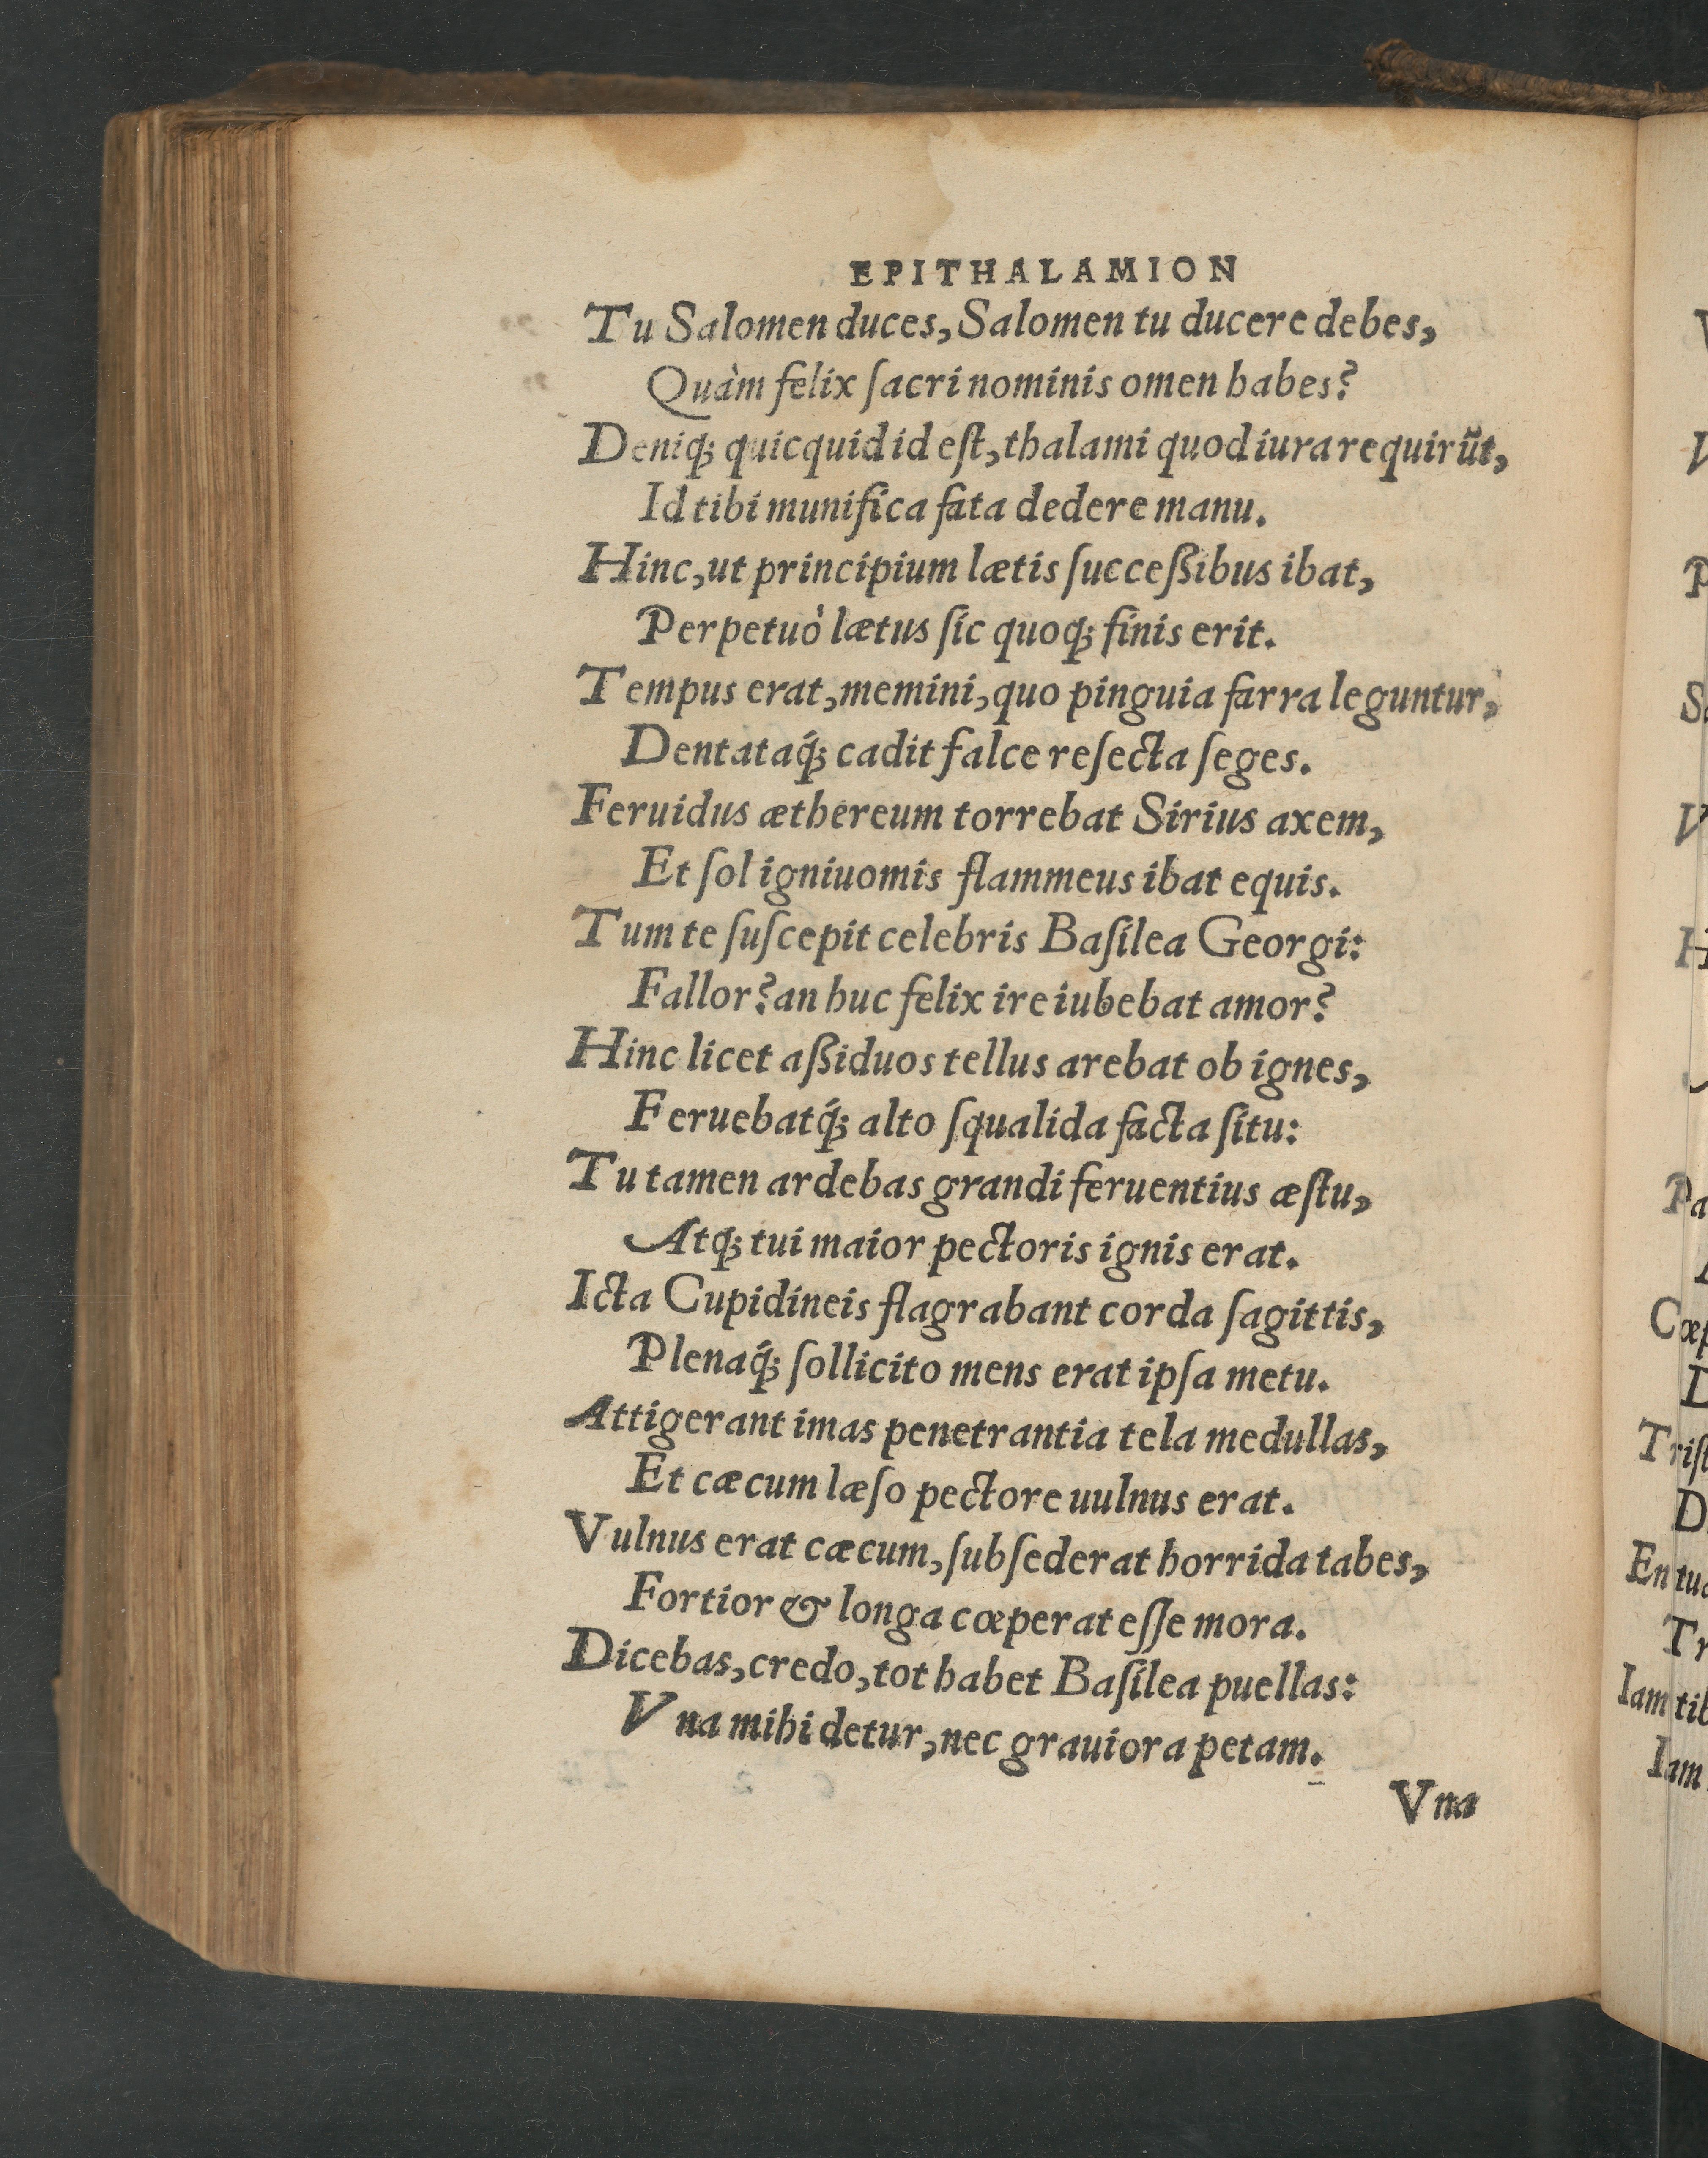 EPITHALAMION
Tu Salomen duces, Salomen tu ducere debes,
Quàm felix ſacri nominis omen habes?
Deniq; quicquid id eſt, thalami quod iura requirũt,
Id tibi munifica fata dedere manu.
Hinc, ut principium lætis ſucceßibus ibat,
Perpetuò lætus ſic quoq; finis erit.
Tempus erat, memini, quo pinguia farra leguntur,
Dentataq́; cadit falce reſecta ſeges.
Feruidus æthereum torrebat Sirius axem,
Et ſol igniuomis flammeus ibat equis.
Tum te ſuſcepit celebris Baſilea Georgi:
Fallor? an huc felix ire iubebat amor?
Hinc licet aßiduos tellus arebat ob ignes,
Feruebatq́; alto ſqualida facta ſitu:
Tu tamen ardebas grandi feruentius æſtu,
Atq; tui maior pectoris ignis erat.
Icta Cupidineis flagrabant corda ſagittis,
Plenaq́; ſollicito mens erat ipſa metu.
Attigerant imas penetrantia tela medullas,
Et cæcum læſo pectore uulnus erat.
Vulnus erat cæcum, ſubſederat horrida tabes,
Fortior & longa cœperat eſſe mora.
Dicebas, credo, tot habet Baſilea puellas:
Vna mihi detur, nec grauiora petam.
Vna